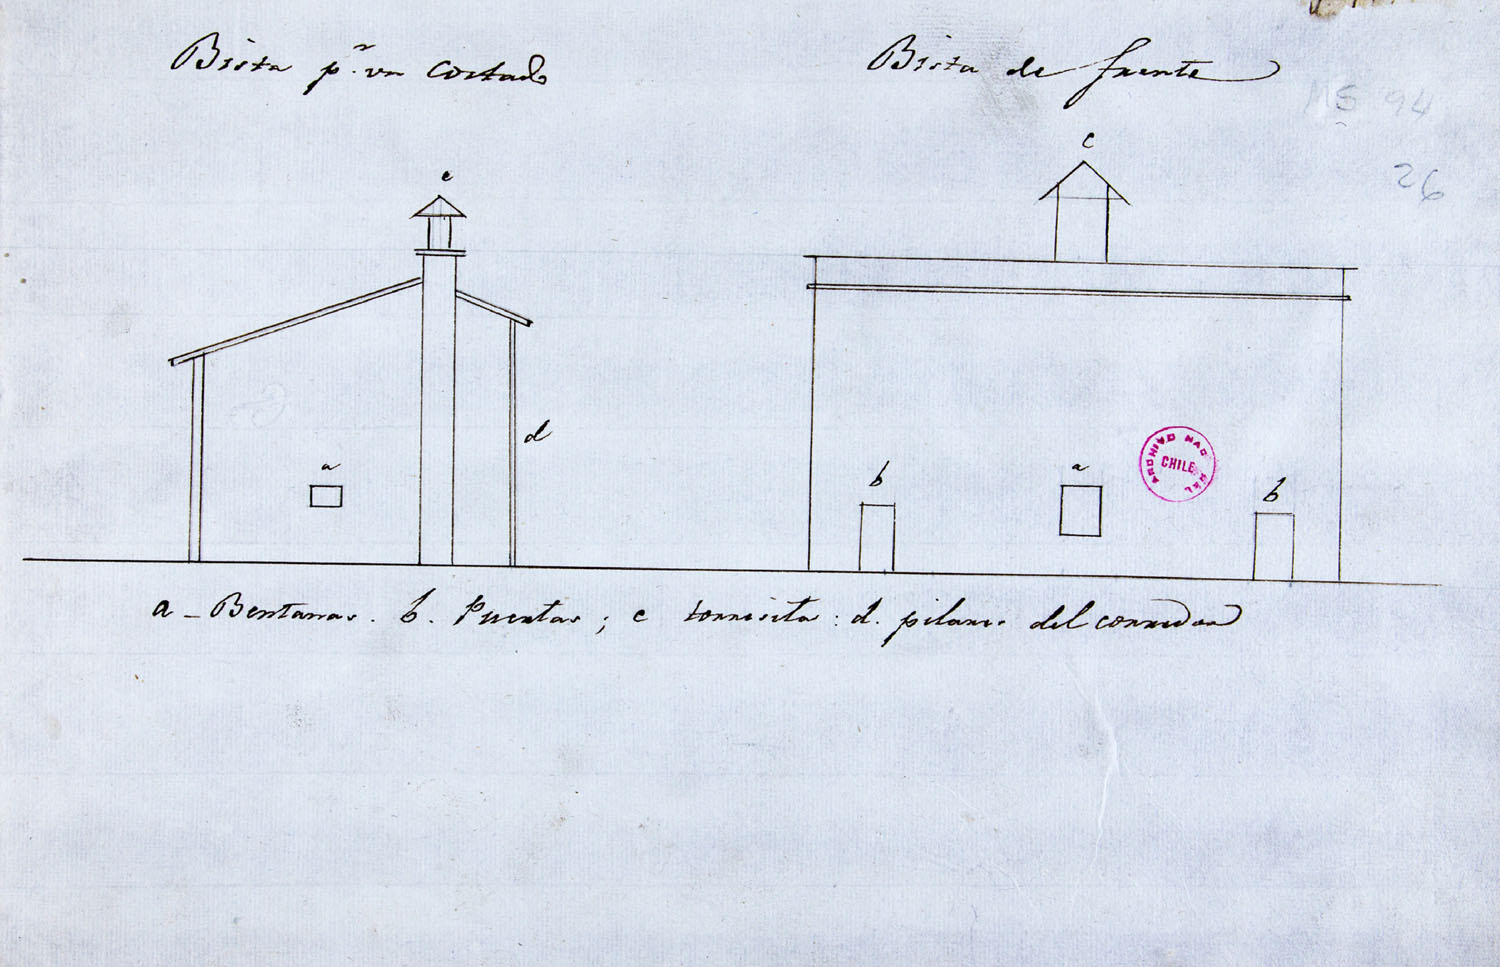 Bista p.r un Costado
Bista de frente
MS 94
26
c
c
d
a
b
a
b
ARCHIVO NACIONAL
CHILE
a - Bentanas. b. Puertas; c torresita: d. pilares del corredor